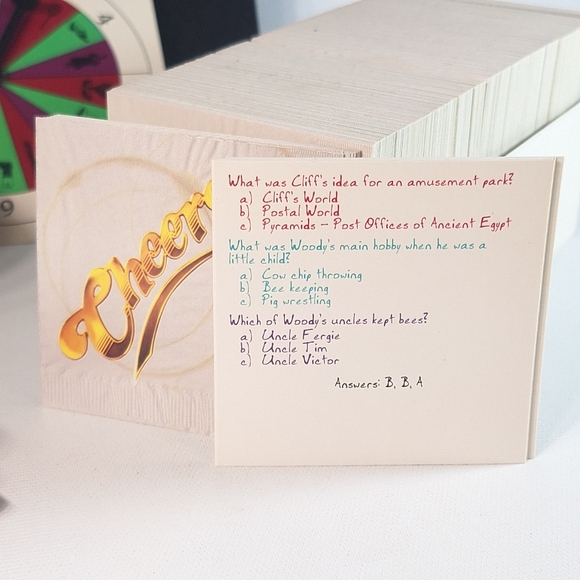 4
9
Cheers
What was Cliff's idea for an amusement park?
a) Cliff's World
b) Postal World
c) Pyramids - Post Offices of Ancient Egypt
What was Woody's main hobby when he was a
little child?
a) Cow chip throwing
b) Bee keeping
c) Pig wrestling
Which of Woody's uncles kept bees?
a) Uncle Fergie
b) Uncle Tim
c) Uncle Victor
Answers: B, B, A